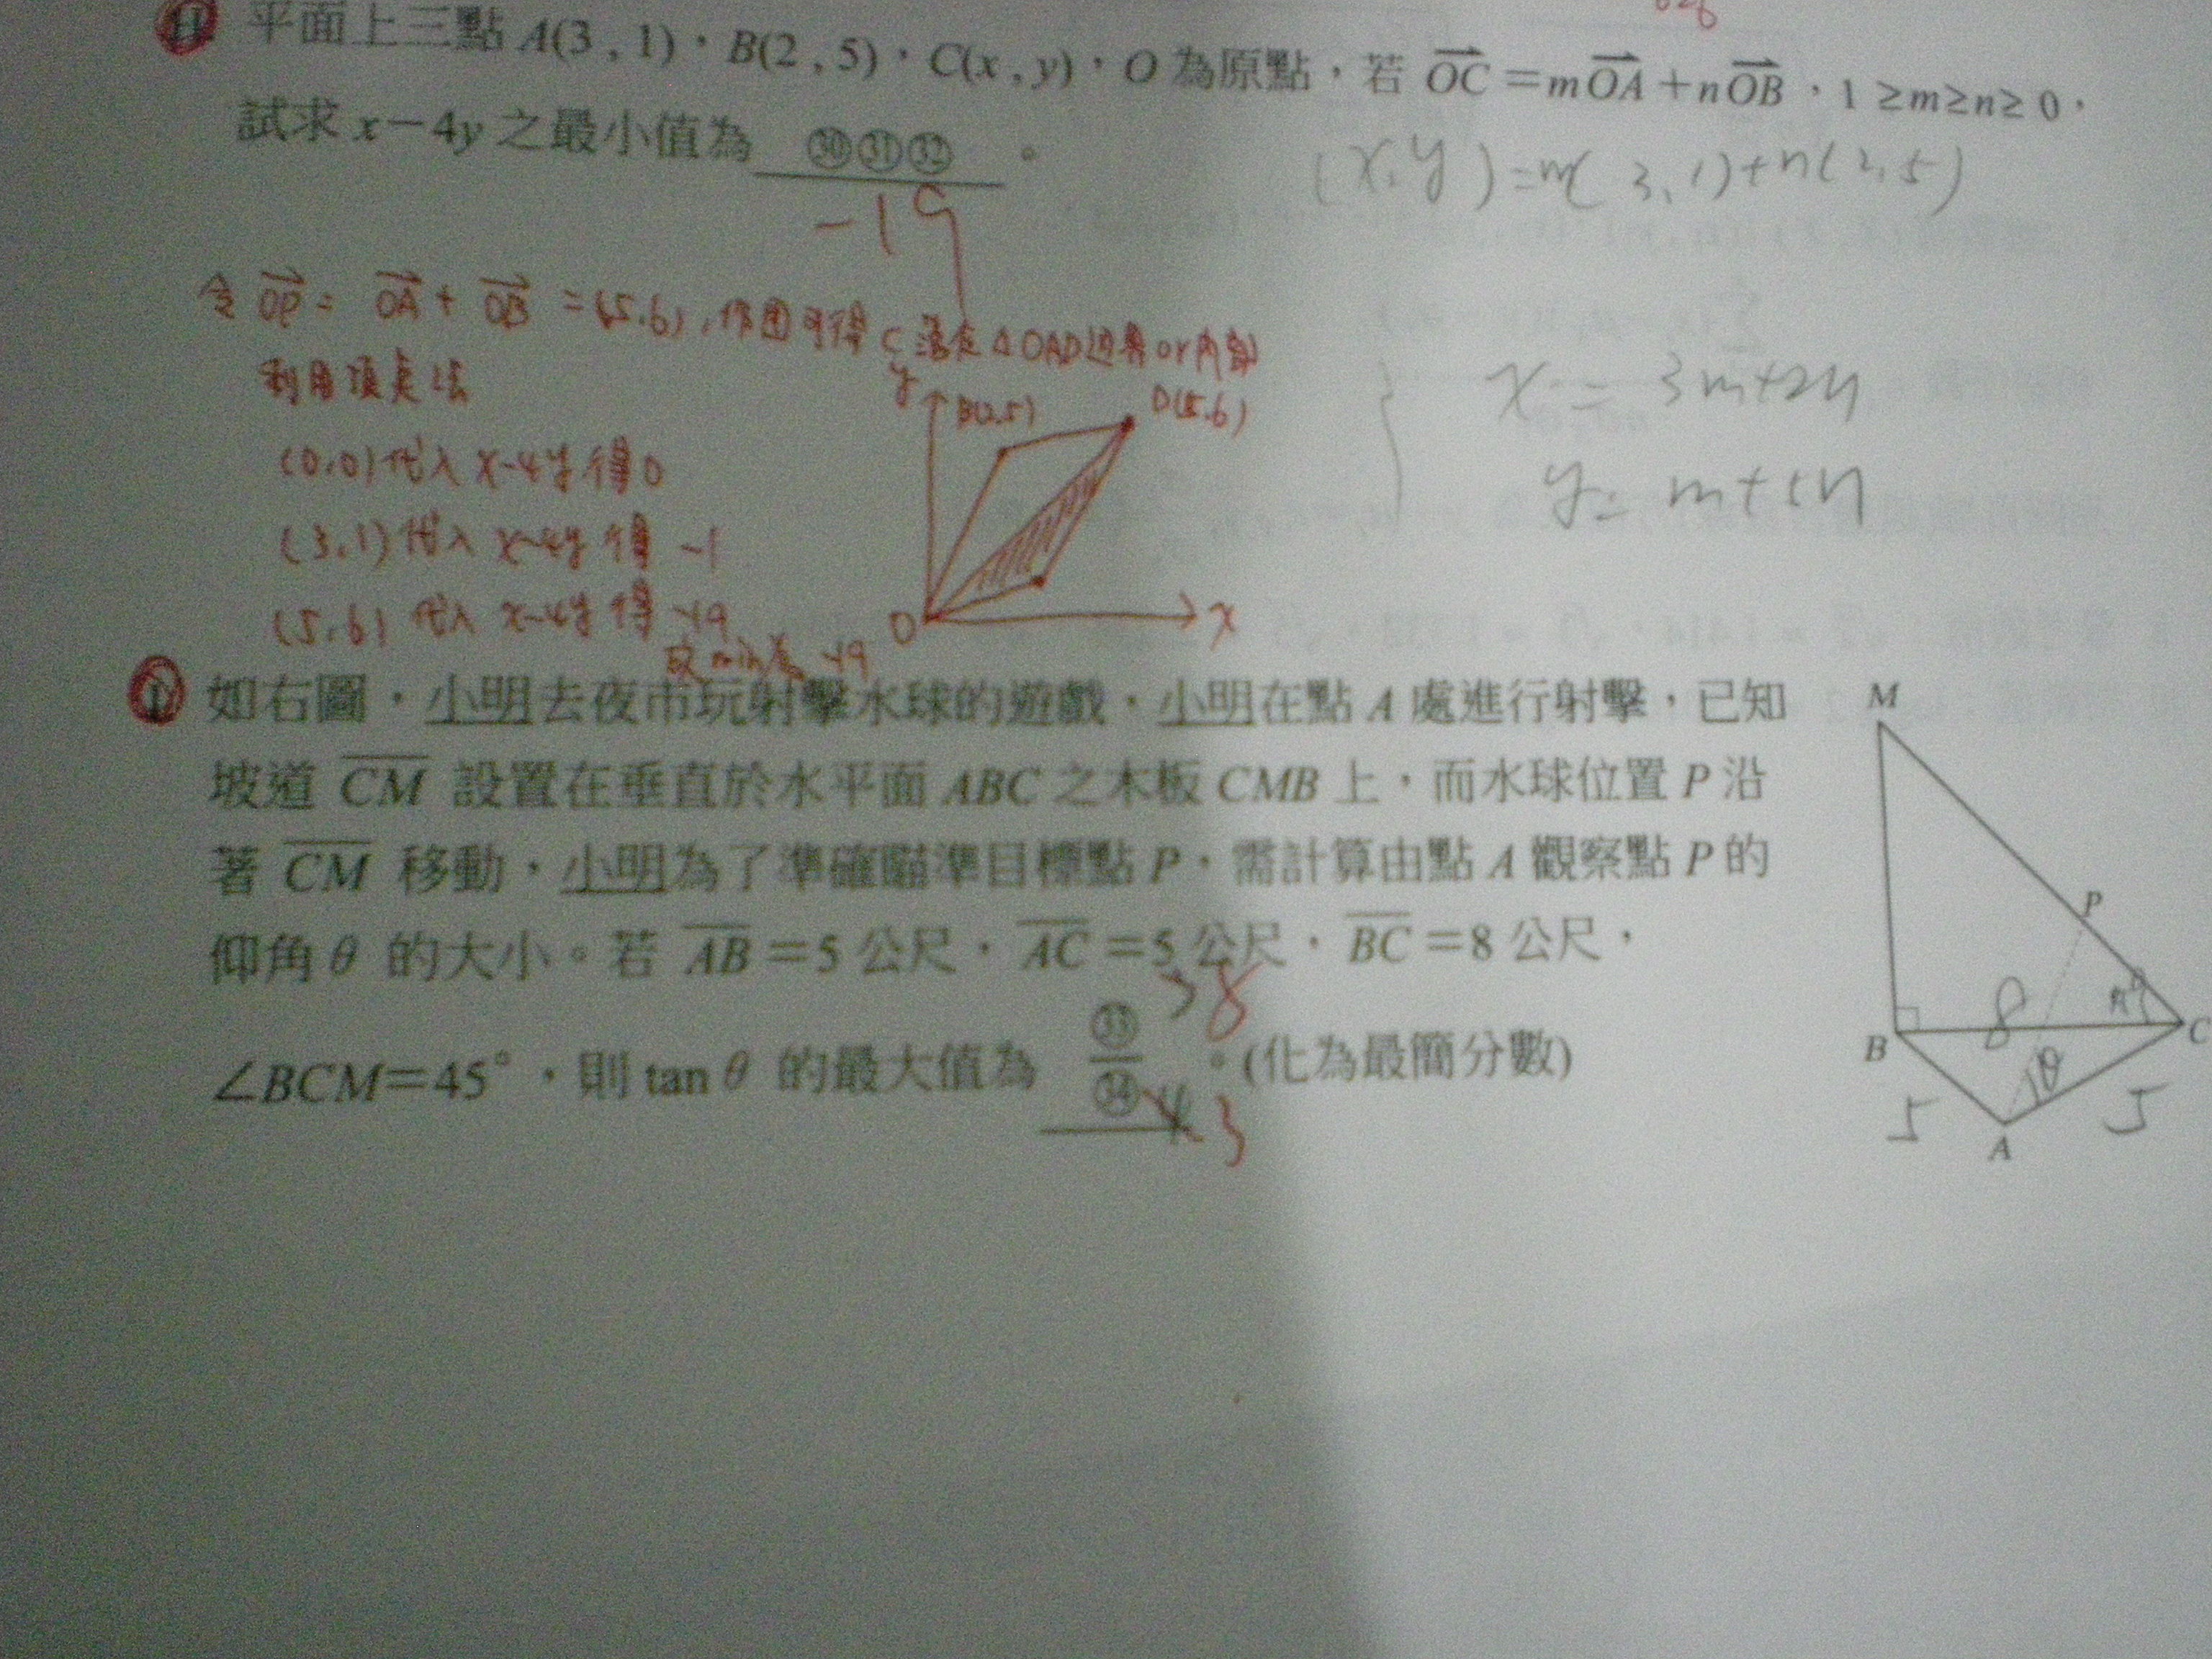 平面上三點 A(3 , 1),B(2 , 5),C(x , y),O 為原點,若 OC = mOA + nOB,1 ≥ m ≥ n ≥ 0,
試求 x−4y 之最小值為 ㉚㉛㉜ 。
(x,y)=m(3,1)+n(2,5)
-19
令 OP = OA + OB = (5,6),作圖可得 C 落在 △OAD边界or內部
利用頂点法
(0,0)代入 x-4y 得 0
(3,1)代入 x-4y 得 -1
(5,6)代入 x-4y 得 -19
故 min為 -19
y
B(2,5)
D(5,6)
O
x
x = 3m+2n
y = m+5n
如右圖,小明去夜市玩射擊水球的遊戲,小明在點 A 處進行射擊,已知
坡道 CM 設置在垂直於水平面 ABC 之木板 CMB 上,而水球位置 P 沿
著 CM 移動,小明為了準確瞄準目標點 P,需計算由點 A 觀察點 P 的
仰角 θ 的大小。若 AB =5 公尺,AC =5 公尺,BC =8 公尺,
∠BCM=45°,則 tan θ 的最大值為 ㉝/㉞ 。(化為最簡分數)
8
3
M
P
B
8
C
θ
5
5
A